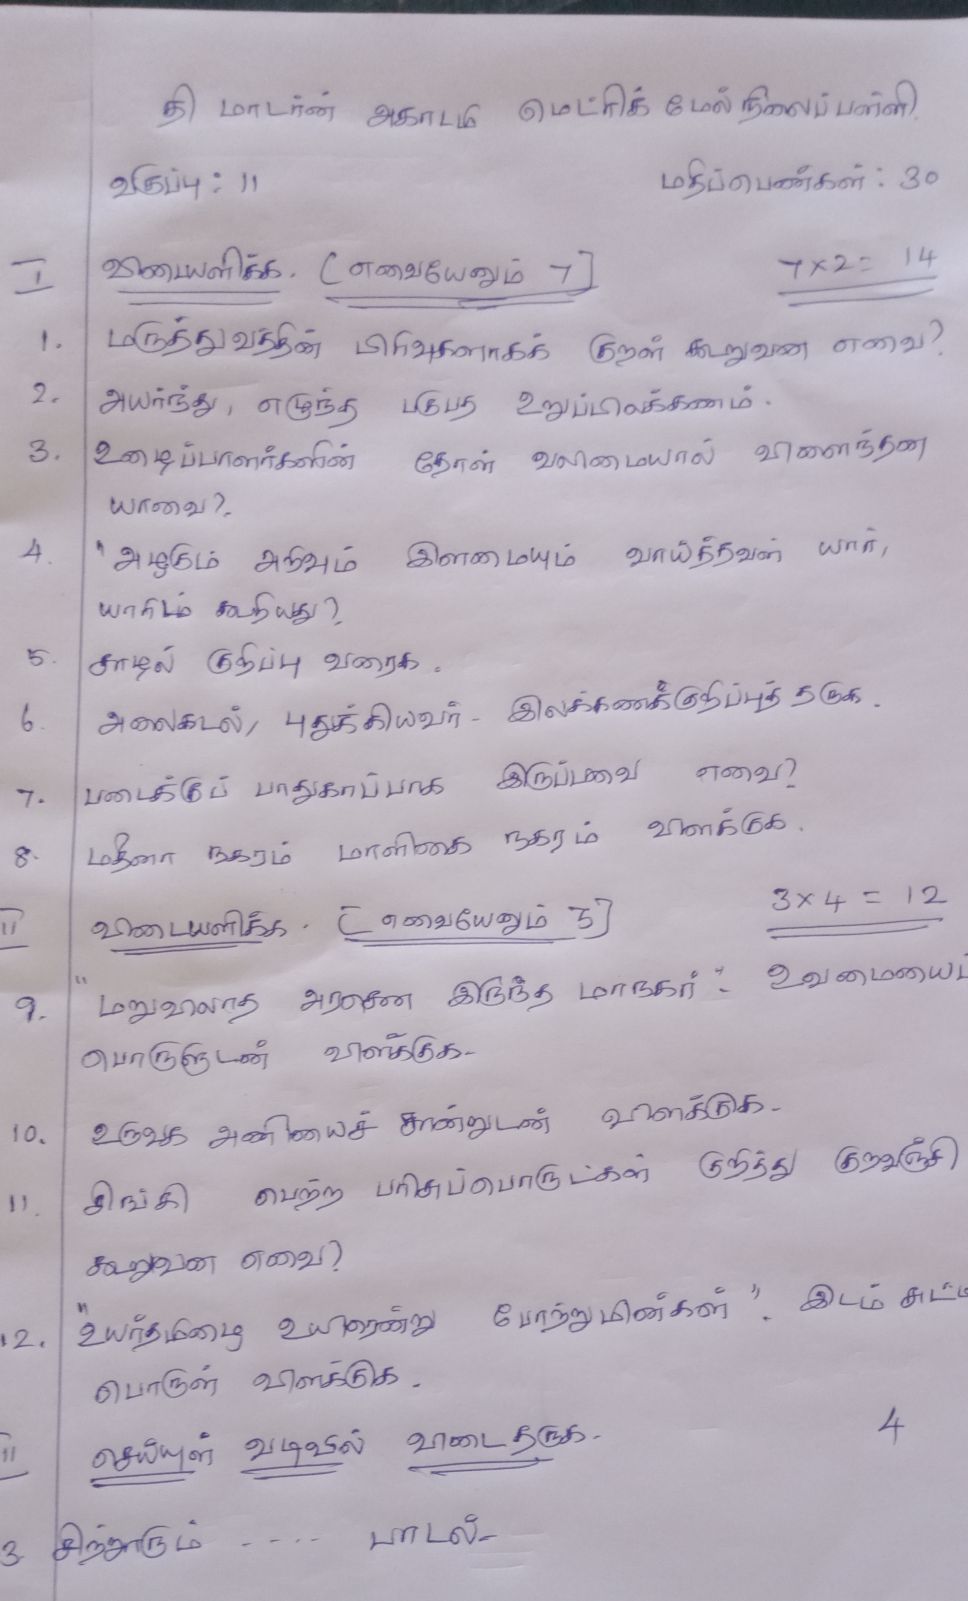 தி மாடர்ன் அகாடமி மெட்ரிக் மேல்நிலைப்பள்ளி
வகுப்பு : 11 மதிப்பெண்கள் : 30
I விடையளிக்க. [எவையேனும் 7] 7×2= 14
1. மருத்துவத்தின் பிரிவுகளாகக் குறள் கூறுவன எவை?
2. அயர்ந்து, எழுந்த பகுபத உறுப்பிலக்கணம்.
3. உழைப்பாளர்களின் தோள் வலிமையால் விளைந்தன
யாவை?
4. "அழகும் அறிவும் இளமையும் வாய்த்தவள் யார்,
யாரிடம் கூறியது?
5. காடில் குறிப்பு வரைக.
6. அலைகடல், புதுக்கியவர் - இலக்கணக்குறிப்புத் தருக.
7. படைக்குப் பாதுகாப்பாக இருப்பவை எவை?
8. மதீனா நகரம் மாளிகை நகரம் விளக்குக.
II விடையளிக்க. [எவையேனும் 3] 3×4 = 12
9. "மறுவிலாத அரசென இருந்த மாநகர்". உவமையைப்
பொருளுடன் விளக்குக.
10. உருவக அணியைச் சான்றுடன் விளக்குக.
11. சிங்கி பெற்ற பரிசுப்பொருட்கள் குறித்து குறவஞ்சி
கூறுவன எவை?
12. "உயர்தமிழை உயிரென்று போற்றுமின்கள்". இடம் சுட்டி
பொருள் விளக்குக.
III செய்யுள் வடிவில் விடைதருக. 4
3. சிற்றூரும் ---- பாடல்-